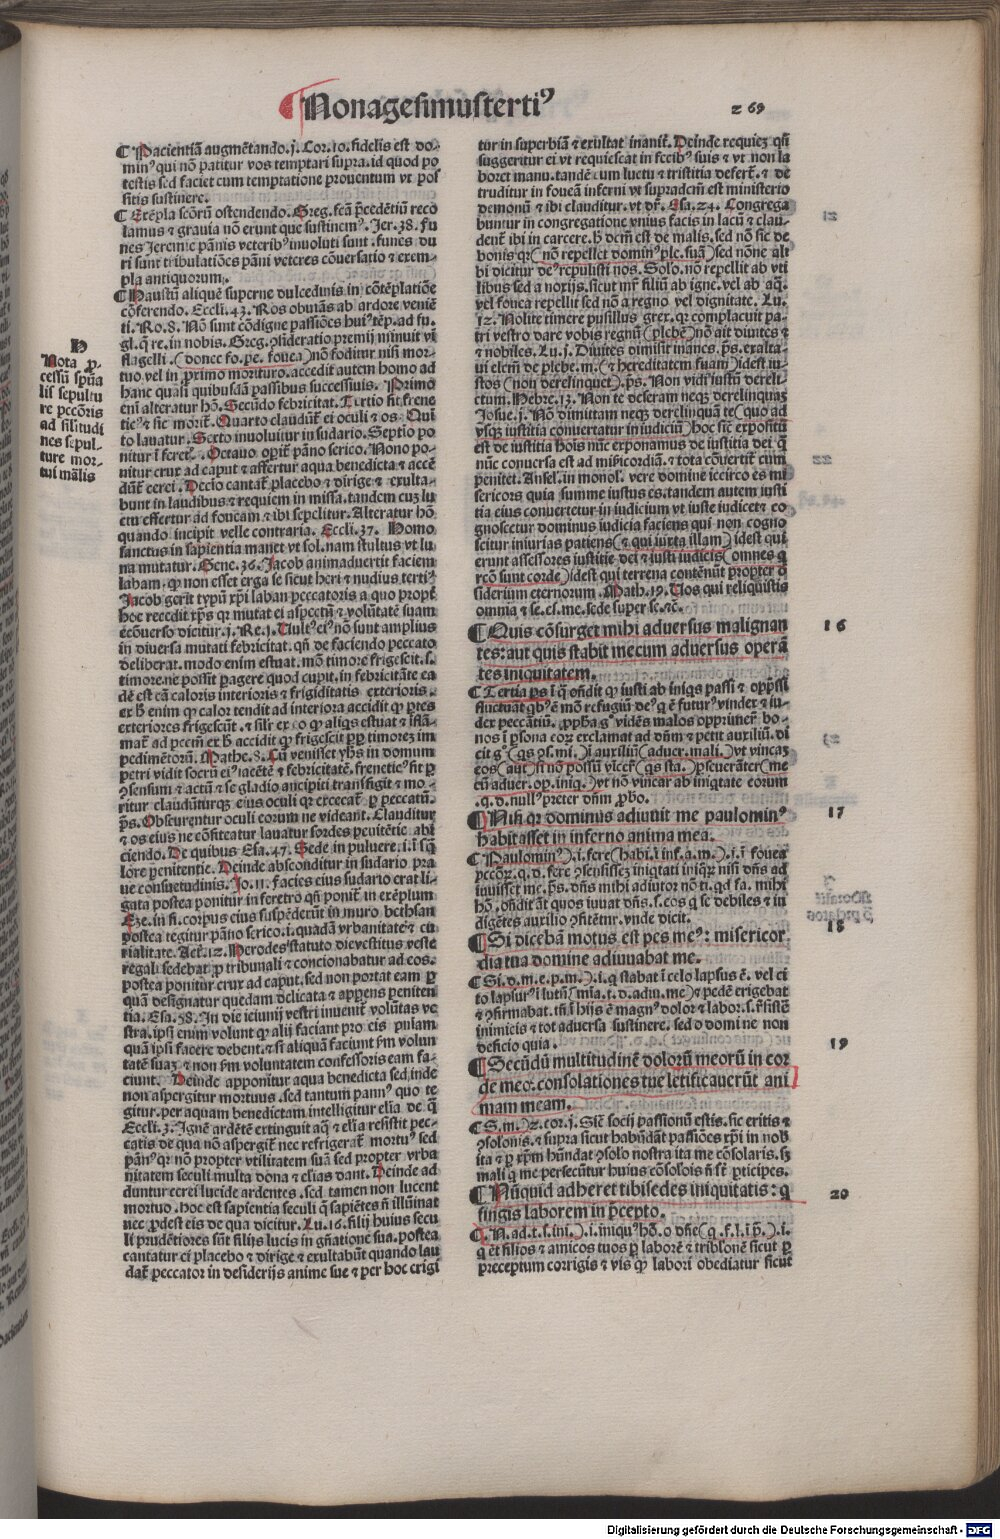 Nonagesimustertiꝰ
z 69
¶ Pacientiā augmētando.j. Cor.10.fidelis est do-
minꝰ qui nō patitur vos temptari supra.id quod po
testis sed faciet cum temptatione prouentum vt pos
sitis sustinere.
¶ Exēpla scōrū ostendendo. Greg. scā p̄cedētiū reco
lamus ⁊ grauia nō erunt que sustinemꝰ. Jer.38. Fu
nes Jeremie pānis veteribꝰ inuoluti sunt .funes du
ri sunt tribulatiōes pāni veteres cōuersatio ⁊ exem-
pla antiquorum.
¶ Haustū aliquē superne dulcedinis in cōtēplatiōe
cōferendo. Eccli.43. Ros obuiās ab ardore veniē
ti. Ro.8. Nō sunt cōdigne passiōes huiꝰ tēp. ad fu.
gl. q̄ re. in nobis. Greg. ꝯsideratio premij minuit vī
flagelli .(donec fo.pe. fouea) nō foditur nisi mor-
tuo vel in proximo morituro. accedit autem homo ad
hanc quasi quibusdā passibus successiuis. Primo
enī alteratur hō. Secūdo febricitat. Tertio fit frene
ticꝰ ⁊ sic morit̄. Quarto claudūt̄ ei oculi ⁊ os. Quī
to lauatur. Sexto inuoluitur in sudario. Septīo po
nitur ī feret̄. Octauo opit̄ pāno serico. Nono po-
nitur crux ad caput ⁊ affertur aqua benedicta ⁊ accē
dūt̄ cerei. Decīo cantat̄ placebo ⁊ dirige ⁊ exulta-
bunt in laudibus ⁊ requiem in missa. tandem cuȝ lu
ctu effertur ad foueam ⁊ ibi sepelitur. Alteratur hō
quando incipit velle contraria. Eccli.37. Homo
sanctus in sapientia manet vt sol. nam stultus vt lu
na mutatur. Gene.36. Jacob animaduertit faciem
laban. ꝙ non esset erga se sicut heri ⁊ nudius tertiꝰ
Jacob gerit typū xp̄i laban peccatoris a quo propt̄
hoc recedit xp̄s qr mutat ei aspectū ⁊ volūtatē suam
ecōuerso dicitur.j. Re.j. Vultꝰ eiꝰ nō sunt amplius
in diuersa mutati febricitat. qn̄ de faciendo peccato
deliberat. modo enim estuat. mō timore frigescit.s.
timore ne possit ꝑagere quod cupit. in febricitāte ea
dē est cā caloris interioris ⁊ frigiditatis exterioris.
ex h̄ enim ꝙ calor tendit ad interiora accidit ꝙ ꝑtes
exteriores frigescūt. ⁊ silr̄ ex eo ꝙ aliqs estuat ⁊ īflā-
mat̄ ad pcēm ex h̄ accidit ꝙ frigescit ꝑpt̄ timorez im
pedimētorū. Mathe.8. Cū venisset yhs in domum
petri vidit socrū eiꝰ iacētē ⁊ febricitatē. freneticꝰ fit ꝑ
ꝯsensum ⁊ actū ⁊ se gladio ancipiti transfigit ⁊ mo-
ritur claudūturqȝ eius oculi qr excecat̄ ꝑ peccatū.
p̄s. Obscurentur oculi eorum ne videant. Clauditur
⁊ os eius ne cōfiteatur lauatur sordes penitētie abi
ciendo. De quibus Esa.47. Sede in puluere.i.ī sq̄
lore penitentie. Deinde absconditur in sudario pra
ue consuetudinis. Jo.11. facies eius sudario erat li-
gata postea ponitur in feretro qn̄ ponit̄ in exēplum
Eze. in fi. corpus eius suspēderūt in muro bethsan
postea tegitur pāno serico.i. quadā vrbanitate ⁊ cu
rialitate. Act.12. Herodes statuto die vestitus veste
regali sedebat pro tribunali ⁊ concionabatur ad eos.
postea ponitur crux ad caput. sed non portat eam ꝑ
quā designatur quedam delicata ⁊ appens peniten
tia. Esa.58. In die ieiunij vestri inuenit̄ volūtas ve
stra. ipsi enim volunt ꝙ alij faciant pro eis pniam
quā ipsi facere debent. ⁊ si aliquā faciunt ꝑm volun
tatē suaȝ ⁊ non ꝑm voluntatem confessoris eam fa-
ciunt. Deinde apponitur aqua benedicta sed inde
non aspergitur mortuus .sed tantum pannꝰ quo te
gitur. per aquam benedictam intelligitur elīa de q̄
Eccli.3. Ignē ardētē extinguit aq̄ ⁊ elīa resistit pec-
catis de qua nō aspergit̄ nec refrigerat̄ mortuꝰ sed
pānꝰ qr nō propter vtilitatem suā sed propter vrba
nitatem seculi multa dona ⁊ elīas dant. Deinde ad
duntur cerei lucide ardentes .sed tamen non lucent
mortuo .hoc est sapientia seculi q̄ sapiētes n̄ illūinat
nec ꝓdest eis de qua dicitur. Lu.16. filij huius secu
li prudētiores sūt filijs lucis in gn̄atione sua. postea
cantatur ei placebo ⁊ dirige ⁊ exultabūt quando lau
dat̄ peccator in desiderijs anime sue ⁊ per hoc erigi
H
Nota ꝓ-
cessū spūa
lis sepultu
re pcc̄oris
ad sīlitudi
nes sepul-
ture mor-
tui mālis
tur in superbiā ⁊ exultat inanit̄. Deinde requieȝ qn̄
suggeritur ei vt requiescat in fecibꝰ suis ⁊ vt non la
boret manu. tandē cum luctu ⁊ tristitia defert̄. ⁊ de
truditur in foueā inferni vt supradcm̄ est ministerio
demonū ⁊ ibi clauditur. vt dr̄. Esa.24. Congrega
buntur in congregatione vnius facis in lacū ⁊ clau-
dent̄ ibi in carcere. h̄ dcm̄ est de malis. sed nō sic de
bonis qr (nō repellet dominꝰ ple. suā) sed nōne ali
bi dicitur deꝰ repulisti nos. Solo. nō repellit ab vti
libus sed a noxijs. sicut mr̄ filiū ab igne. vel ab aq̄.
vel fouea repellit sed nō a regno vel dignitate. Lu.
12. Nolite timere pusillus grex. qr complacuit pa-
tri vestro dare vobis regnū (plebē) nō ait diuites ⁊
⁊ nobiles. Lu.j. Diuites dimisit inanes. p̄s. exalta-
ui elcm̄ de plebe m. (⁊ hereditatem suam) idest iu-
stos (non derelinquet) p̄s. Non vidi iustū dereli-
ctum. Hebre.13. Non te deseram neqȝ derelinquaȝ
Josue.j. Nō dimittam neqȝ derelinquā te (quo ad
vsqȝ iustitia conuertatur in iudiciū) hoc sic expositū
est de iustitia hois nūc exponamus de iustitia dei q̄
nūc conuersa est ad mīam. ⁊ tota cōuertit̄ cum
penitet. Ansel. in monol. vere domine iccirco es mi
sericors quia summe iustus es. tandem autem iusti
tia eius conuertetur in iudicium vt iuste iudicet ⁊ co
gnoscetur dominus iudicia faciens qui non cogno
scitur iniurias patiens (⁊ qui iuxta illam) idest qui
erunt assessores iustitie dei ⁊ iusti iudicis (omnes q̄
rcō sunt corde) idest qui terrena contēnūt propter d̄
siderium eternorum. Math.19. Vos qui reliquistis
omnia ⁊ se.es.me.sede super se.⁊c̄.
¶ Quis cōsurget mihi aduersus malignan
tes: aut quis stabit mecum aduersus operā
tes iniquitatem.
16
¶ Tertia ps ī q̄ ondit ꝙ iusti ab iniqs passi ⁊ opp̄ssi
fluctuāt qbꝰ ē mō refugiū deꝰ q̄ ē futurꝰ vindex ⁊ iu-
dex peccātiū. ꝓpha gͦ vidēs malos opprimer̄ bo-
nos ī ꝑsona eoꝝ exclamat ad dn̄m ⁊ petit auxiliū. di
cit gͦ (qs ꝯs. mi.) ī auxiliū (aduer. mali.) vt vincaȝ
eos (aut) si nō possū vicer̄ (qs sta.) ꝑseuerāter (me
cū aduer. op. iniq.) vt nō vincar ab iniqtate eorum
.q.d. nullꝰ preter dn̄m ꝓbo.
¶ Nisi qr dominus adiuuit me paulominꝰ
habitasset in inferno anima mea.
17
¶ Paulominꝰ).i. fere (habi. ī inf. a. m.).i. ī fouea
pcc̄oꝝ. q.d. fere ꝯsensissez iniqtati iniqꝝ nisi dn̄s ad
iuuisset me. p̄s. dn̄s mihi adiutor nō ti. qd fa. mihi
hō. ondit āt quos iuuat dn̄s.s. eos q̄ se debiles ⁊ in
digētes auxilio ꝯfitētur. vnde dicit.
¶ Si dicebam motus est pes meꝰ: misericor
dia tua domine adiuuabat me.
18
¶ Si. d. m. e. p. m.).i. q̄ stabat ī celo lapsus ē. vel ci
to lapsurꝰ ī lutū (mīa. t. d. adiu. me) ⁊ pedē erigebat
⁊ ꝯfirmabat. tn̄ ī hijs ē magnꝰ dolor ⁊ labor.s. r̄sistē
inimicis ⁊ tot aduersa sustinere. sed o domine non
deficio quia.
¶ Secūdū multitudinē dolorū meorū in cor
de meo: consolationes tue letificauerūt ani
mam meam.
19
¶ S.m.) 2. cor.j. Sic̄ socij passionū estis. sic eritis ⁊
ꝯsolonis. ⁊ supra sicut habūdāt passiōes xp̄i in nob̄
ita ⁊ ꝑ xp̄m hūndat ꝯsolo nostra ita me cōsolaris. sȝ
mali q̄ me persecūtur huius cōsolois n̄ st̄ ꝑticipes.
¶ Nūquid adheret tibi sedes iniquitatis: q̄
fingis laborem in p̄cepto.
20
¶ N. ad. t. s. ini.).i. iniquꝰ hō. o dn̄e (q̄. f. l. ī p̄.).i.
q̄ et filios ⁊ amicos tuos ꝑ laborē ⁊ tribloēs sicut ꝑ
preceptum corrigis ⁊ vis ꝙ labori obediatur sicut
Digitalisierung gefördert durch die Deutsche Forschungsgemeinschaft - DFG